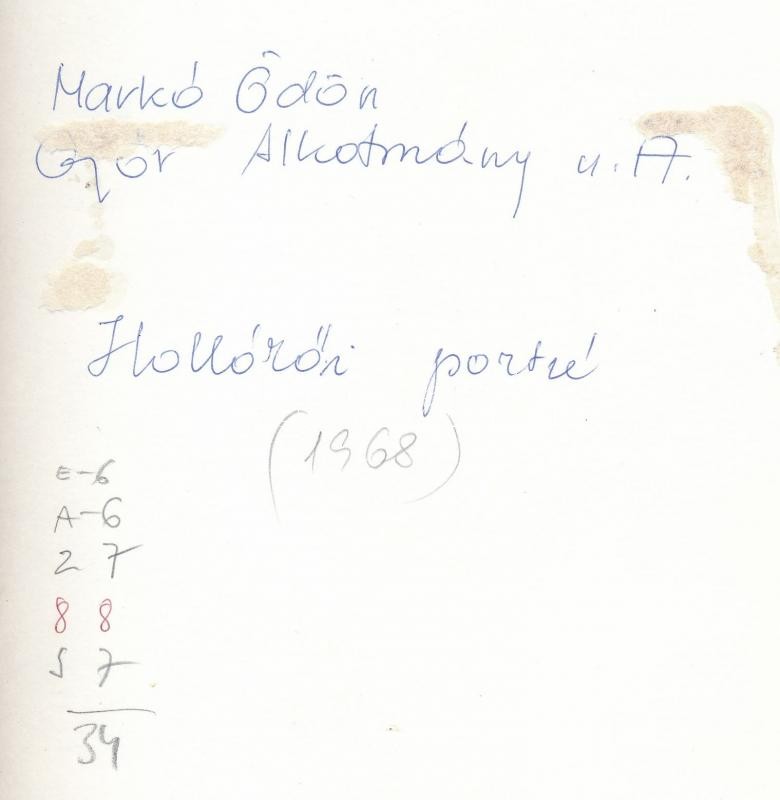 Markó Ödön
Győr Alkotmány u. 17.
Hollórői portré
(1968)
E-6
A-6
2 7
8 8
S 7
34